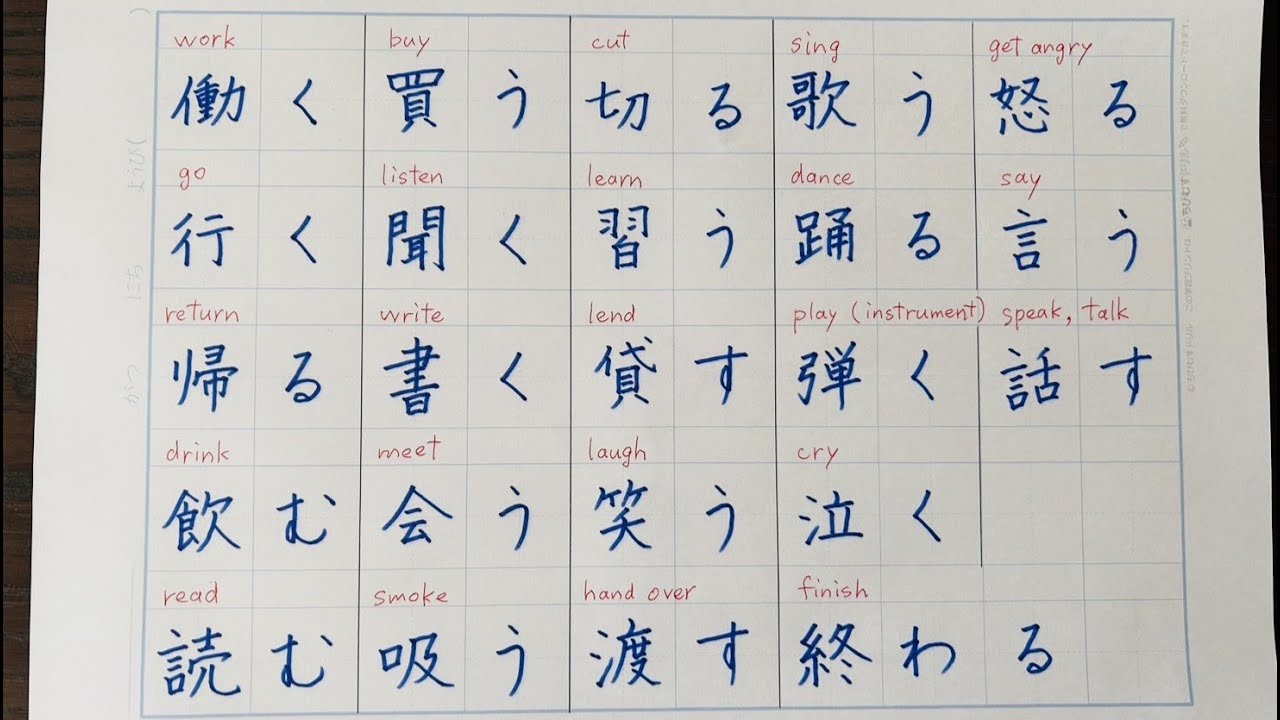 work buy cut sing get angry
働く 買う 切る 歌う 怒る
go listen learn dance say
行く 聞く 習う 踊る 言う
return write lend play (instrument) speak, talk
帰る 書く 貸す 弾く 話す
drink meet laugh cry
飲む 会う 笑う 泣く
read smoke hand over finish
読む 吸う 渡す 終わる